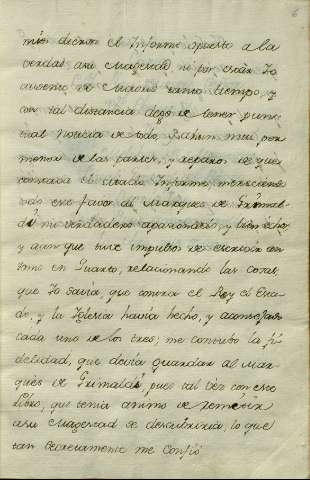 6
mis dieron el Informe opuesto a la
verdad a su Magestad ni por estar Yo
ausente de Madrid tanto tiempo, y
con tal distancia dejó de tener pun-
tual noticia de todo, Sabian mui por
menor de las partes, y reparos de que
constaba el citado Informe mereciendo
este favor al Marques de Grimal-
di mi verdadero apasionado, y bien echor
y aunque tuve impulsos de escrivir un
tomo en Quarto, relacionando las cosas
que Yo savia, que contra el Rey el Esta-
do, y la Iglesia havia hecho, y aconsejado
cada uno de los tres; me contubo la fi-
delidad, que devia guardar al Mar-
ques de Grimaldi, pues tal vez con este
Libro, que tenia animo de remitir
a su Magestad se descubriria, lo que
tan secretamente me confió